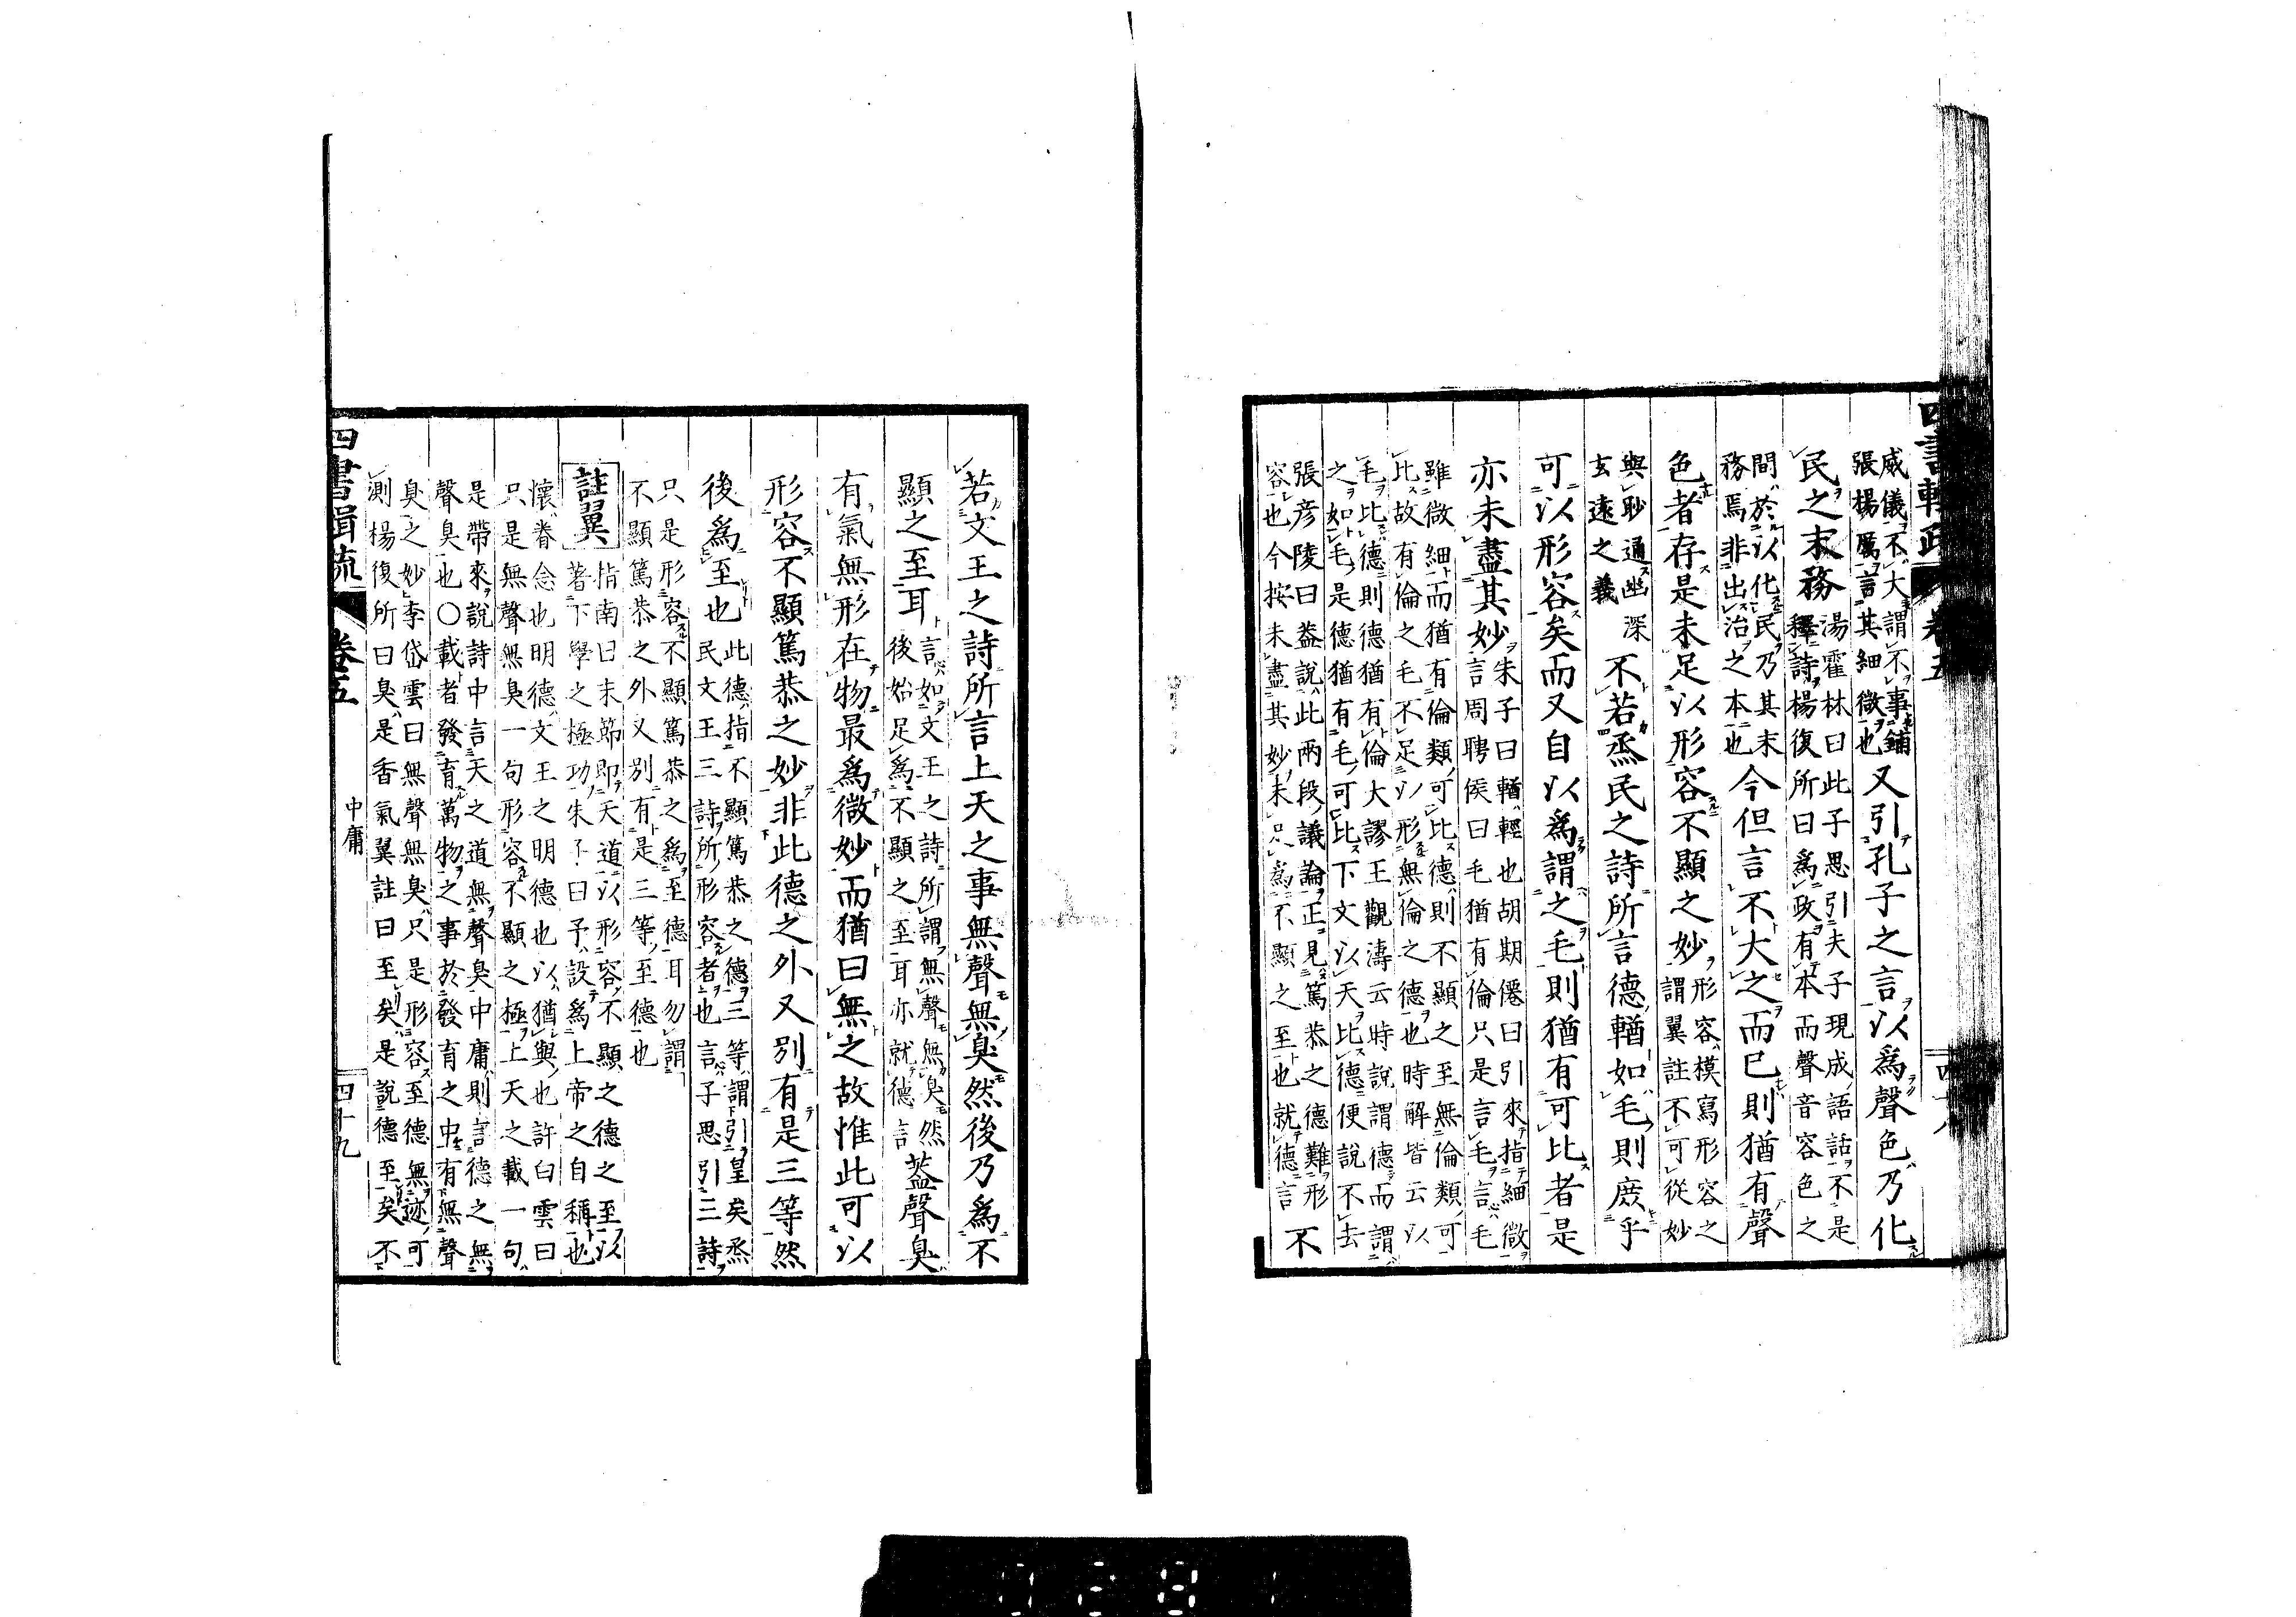 四書輯疏 卷五
威儀不大謂不事鋪張楊厲言其細微也又引孔子之言以爲聲色乃化
民之末務湯霍林曰此子思引夫子現成語話不是釋詩楊復所曰爲政有本而聲音容色之
間於以化民乃其末務焉非出治之本也今但言不大之而已則猶有聲
色者存是未足以形容不顯之妙形容模寫形容之謂翼註不可從妙
與眇通幽深玄遠之義不若烝民之詩所言德輶如毛則庶乎
可以形容矣而又自以爲謂之毛則猶有可比者是
亦未盡其妙朱子曰輶輕也胡期僊曰引來指細微言周聘侯曰毛猶有倫只是言毛言毛
雖微細而猶有倫類可比德則不顯之至無倫類可比故有倫之毛不足以形無倫之德也時解皆云以
毛比德則德猶有倫大謬王觀濤云時說謂德而謂之如毛是德猶有毛可比下文以天比德便說不去
張彦陵曰葢說此兩段議論正見篤恭之德難形容也今按未盡其妙未只爲不顯之至也就德言不
若文王之詩所言上天之事無聲無臭然後乃爲不
顯之至耳言如文王之詩所謂無聲無臭然後始足爲不顯之至耳亦就德言葢聲臭
有氣無形在物最爲微妙而猶曰無之故惟此可以
形容不顯篤恭之妙非此德之外又別有是三等然
後爲至也此德指不顯篤恭之德三等謂引皇矣烝民文王三詩所形容者也言子思引三詩
只是形容不顯篤恭之爲至德耳勿謂不顯篤恭之外又別有是三等至德也
註翼指南曰末節即天道以形容不顯之德之至以著下學之極功朱子曰予設爲上帝之自稱也
懷眷念也明德文王之明德也以猶與也許白雲曰只是無聲無臭一句形容不顯之極上天之載一句
是帶來說詩中言天之道無聲臭中庸則言德之無聲臭也○載者發育萬物之事於發育之中有無聲
臭之妙李岱雲曰無聲無臭只是形容至德無迹可測楊復所曰臭是香氣翼註曰至矣是說德至矣不
四書輯疏 卷五 中庸 四十九